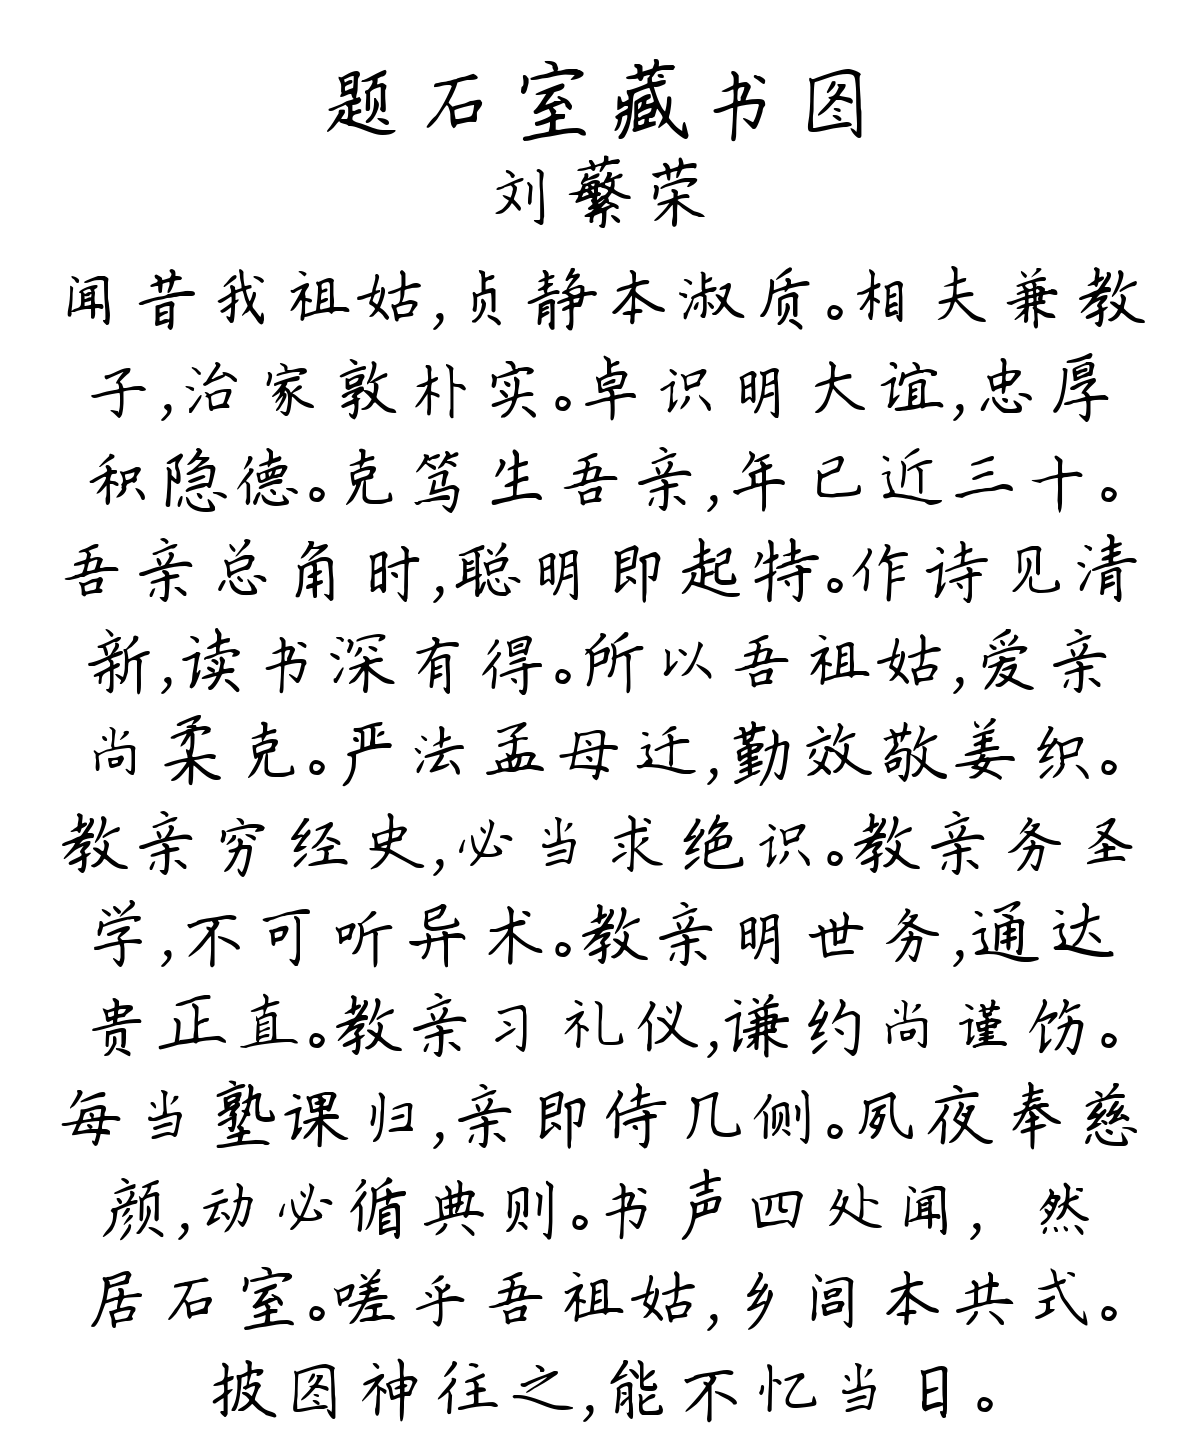 题石室藏书图
刘蘩荣
闻昔我祖姑,贞静本淑质。相夫兼教
子,治家敦朴实。卓识明大谊,忠厚
积隐德。克笃生吾亲,年已近三十。
吾亲总角时,聪明即起特。作诗见清
新,读书深有得。所以吾祖姑,爱亲
尚柔克。严法孟母迁,勤效敬姜织。
教亲穷经史,必当求绝识。教亲务圣
学,不可听异术。教亲明世务,通达
贵正直。教亲习礼仪,谦约尚谨饬。
每当塾课归,亲即侍几侧。夙夜奉慈
颜,动必循典则。书声四处闻, 然
居石室。嗟乎吾祖姑,乡闾本共式。
披图神往之,能不忆当日。